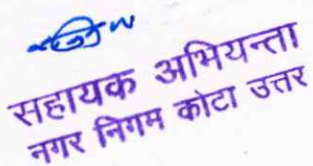 सहायक अभियन्ता
नगर निगम कोटा उत्तर